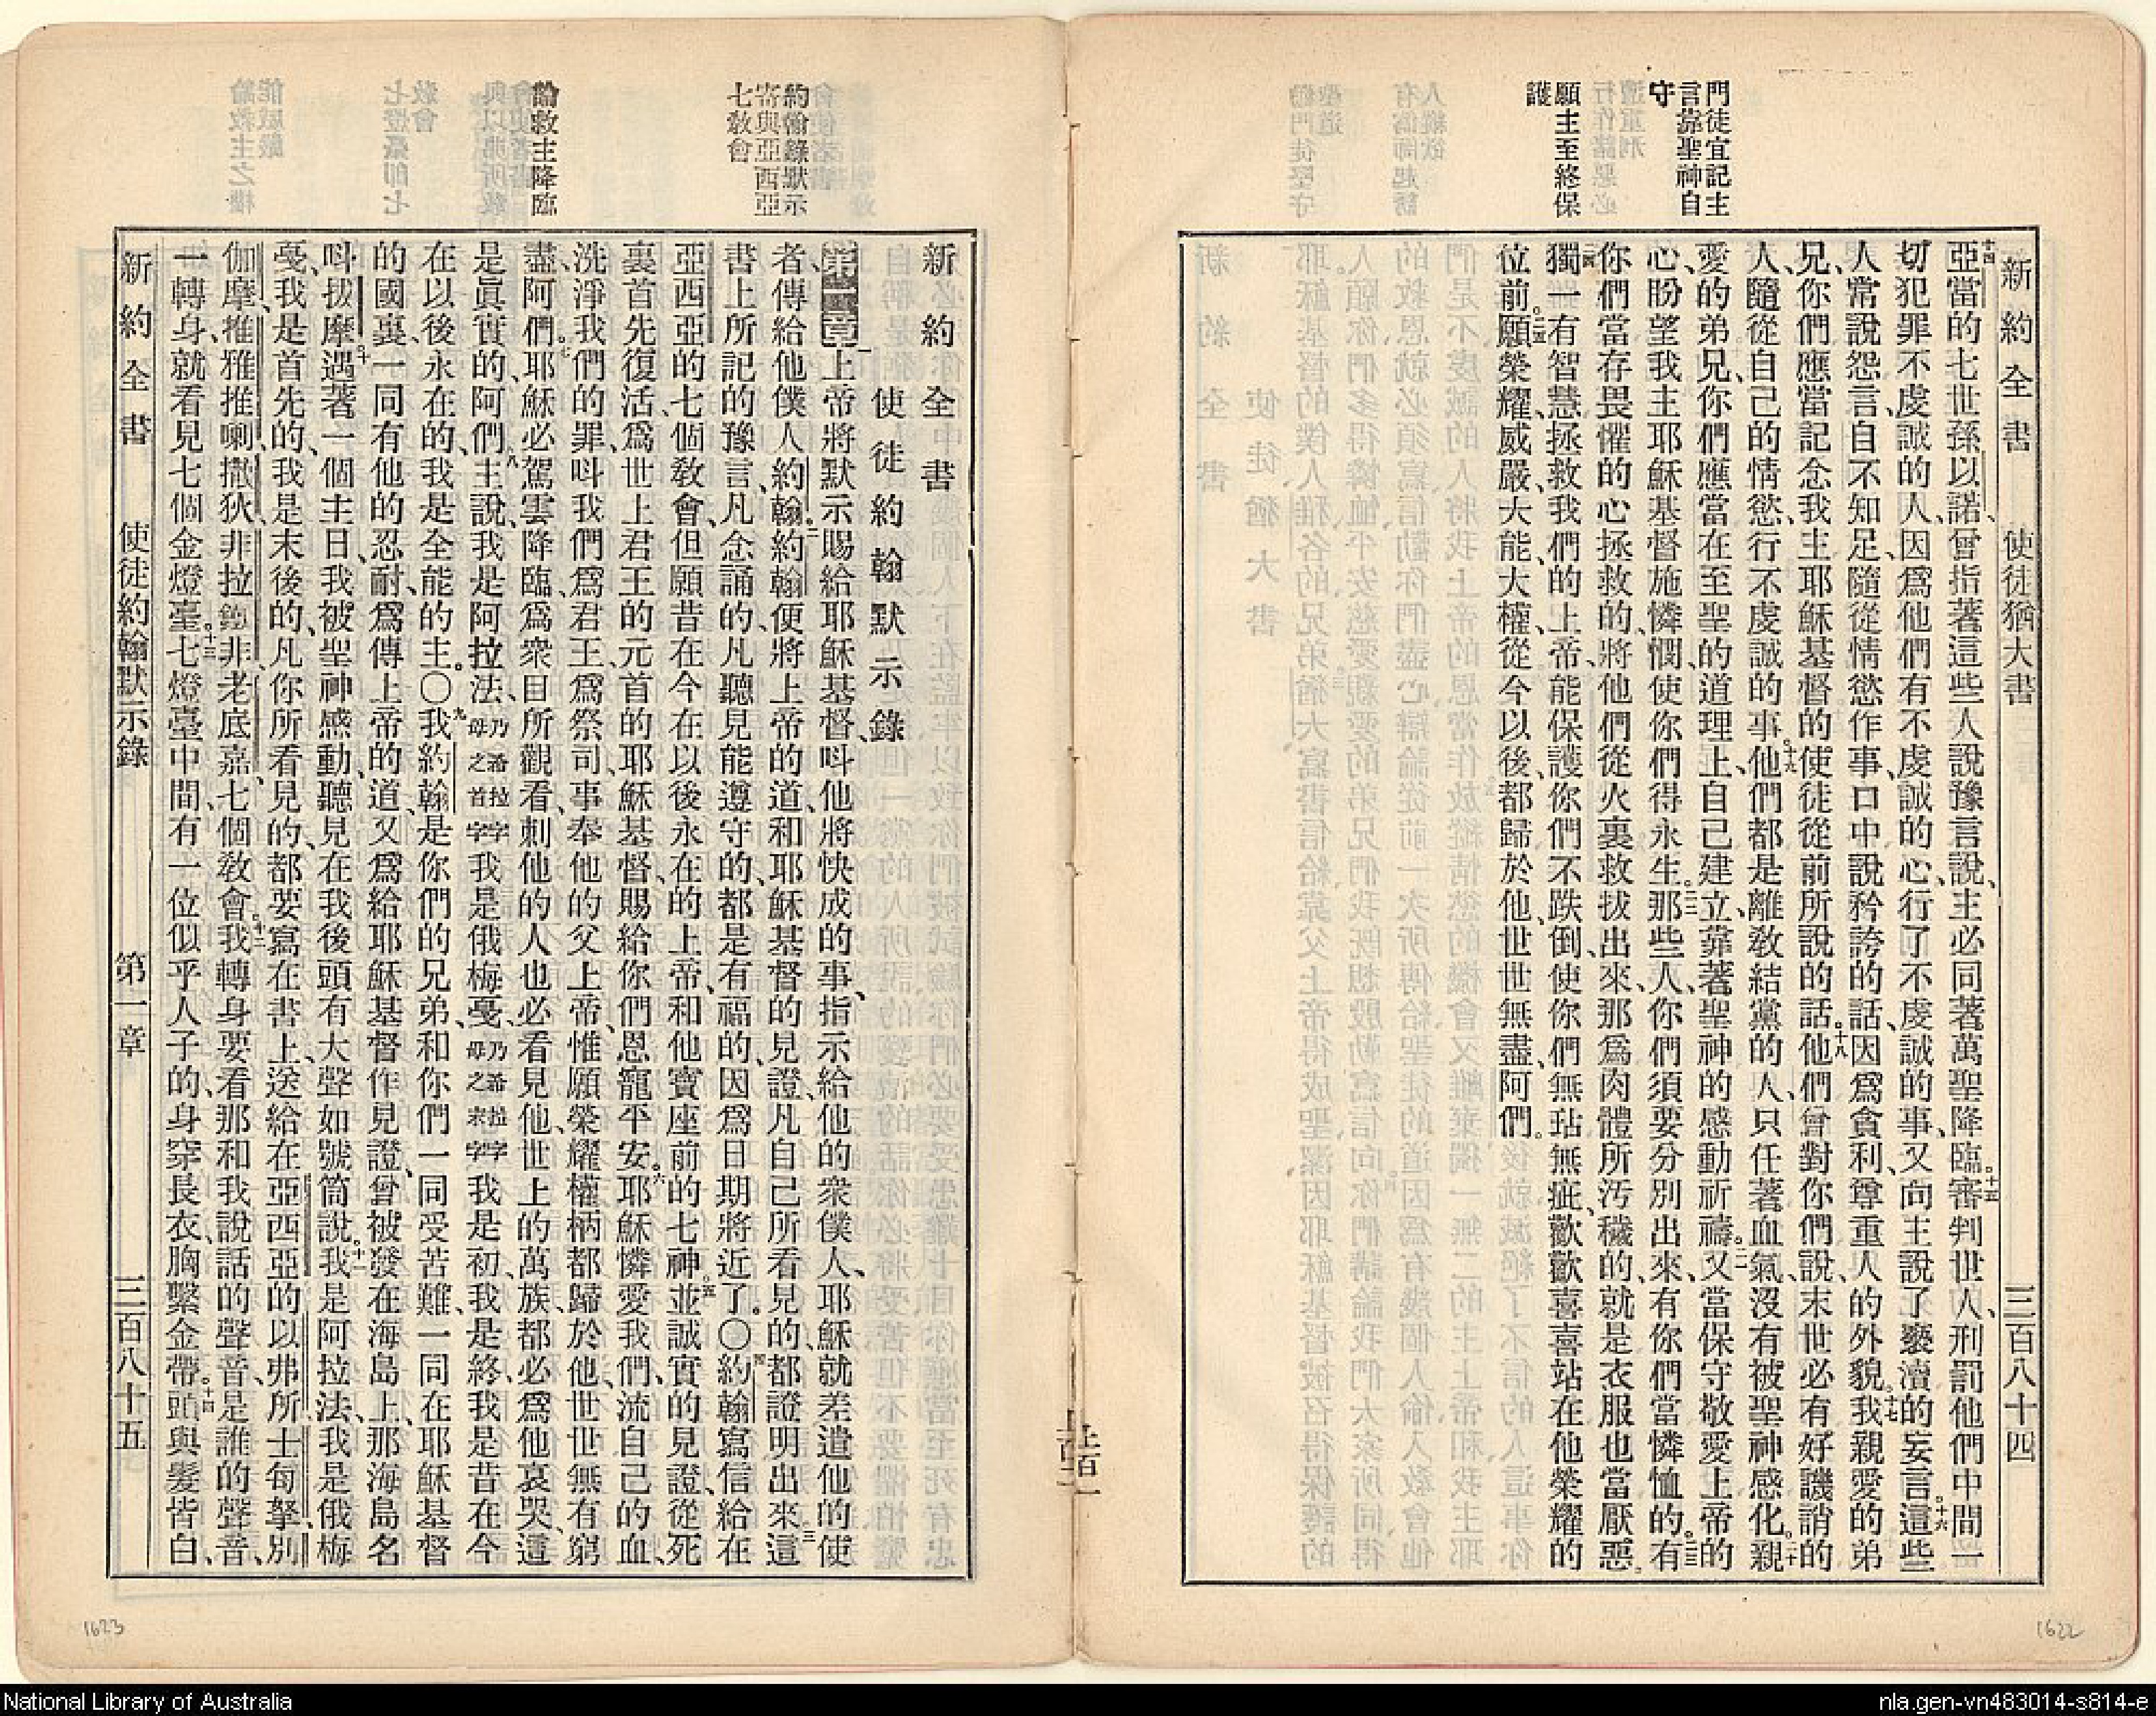 新約全書 使徒猶大書 三百八十四
門徒宜記主
言靠聖神自
守
願主至終保
護
十四亞當的七世孫以諾、曾指著這些人說豫言說、主必同著萬聖降臨。十五審判世人、刑罰他們中間一
切犯罪不虔誠的人、因爲他們有不虔誠的心、行了不虔誠的事、又向主說了褻瀆的妄言。十六這些
人常說怨言、自不知足、隨從情慾作事、口中說矜誇的話、因爲貪利、尊重人的外貌。十七我親愛的弟
兄、你們應當記念我主耶穌基督的使徒從前所說的話。十八他們曾對你們說、末世必有好譏誚的
人、隨從自己的情慾、行不虔誠的事。十九他們都是離敎結黨的人、只任著血氣、沒有被聖神感化。二十親
愛的弟兄、你們應當在至聖的道理上、自己建立、靠著聖神的感動祈禱。二一又當保守敬愛上帝的
心、盼望我主耶穌基督施憐憫、使你們得永生。二二那些人、你們須要分別出來、有你們當憐恤的。二三有
你們當存畏懼的心拯救的、將他們從火裏救拔出來、那爲肉體所汚穢的、就是衣服也當厭惡。
二四獨一有智慧拯救我們的上帝、能保護你們不跌倒、使你們無玷無疵、歡歡喜喜站在他榮耀的
位前。二五願榮耀、威嚴、大能、大權、從今以後、都歸於他、世世無盡、阿們。
約翰錄默示
寄與亞西亞
七敎會
論救主降臨
新約全書
使徒約翰默示錄
第一章一上帝將默示賜給耶穌基督、呌他將快成的事、指示給他的衆僕人、耶穌就差遣他的使
者傳給他僕人約翰。二約翰便將上帝的道、和耶穌基督的見證、凡自己所看見的、都證明出來。三這
書上所記的豫言、凡念誦的、凡聽見能遵守的、都是有福的、因爲日期將近了。〇四約翰寫信給在
亞西亞的七個敎會、但願昔在今在以後永在的上帝、和他寶座前的七神。五並誠實的見證、從死
裏首先復活、爲世上君王的元首的耶穌基督、賜給你們恩寵平安。六耶穌憐愛我們、流自己的血、
洗淨我們的罪、呌我們爲君王、爲祭司、事奉他的父上帝、惟願榮耀權柄都歸於他、世世無有窮
盡、阿們。七耶穌必駕雲降臨、爲衆目所觀看、刺他的人也必看見他、世上的萬族、都必爲他哀哭、這
是眞實的、阿們。八主說、我是阿拉法、乃希拉字母之首字我是俄梅戞、乃希拉字母之末字我是初、我是終、我是昔在今
在以後永在的、我是全能的主。〇九我約翰是你們的兄弟、和你們一同受苦難、一同在耶穌基督
的國裏、一同有他的忍耐、爲傳上帝的道、又爲給耶穌基督作見證、曾被發在海島上、那海島名
呌拔摩。十遇著一個主日、我被聖神感動、聽見在我後頭有大聲如號筒說。十一我是阿拉法、我是俄梅
戞、我是首先的、我是末後的、凡你所看見的、都要寫在書上、送給在亞西亞的以弗所、士每拏、別
伽摩、推雅推喇、撒狄、非拉鐵非、老底嘉、七個敎會。十二我轉身要看那和我說話的聲音、是誰的聲音、
一轉身、就看見七個金燈臺。十三七燈臺中間、有一位似乎人子的、身穿長衣、胸繫金帶。十四頭與髮皆白、
新約全書 使徒約翰默示錄 第一章 三百八十五
1623
1622
National Library of Australia
nla.gen-vn483014-s814-e